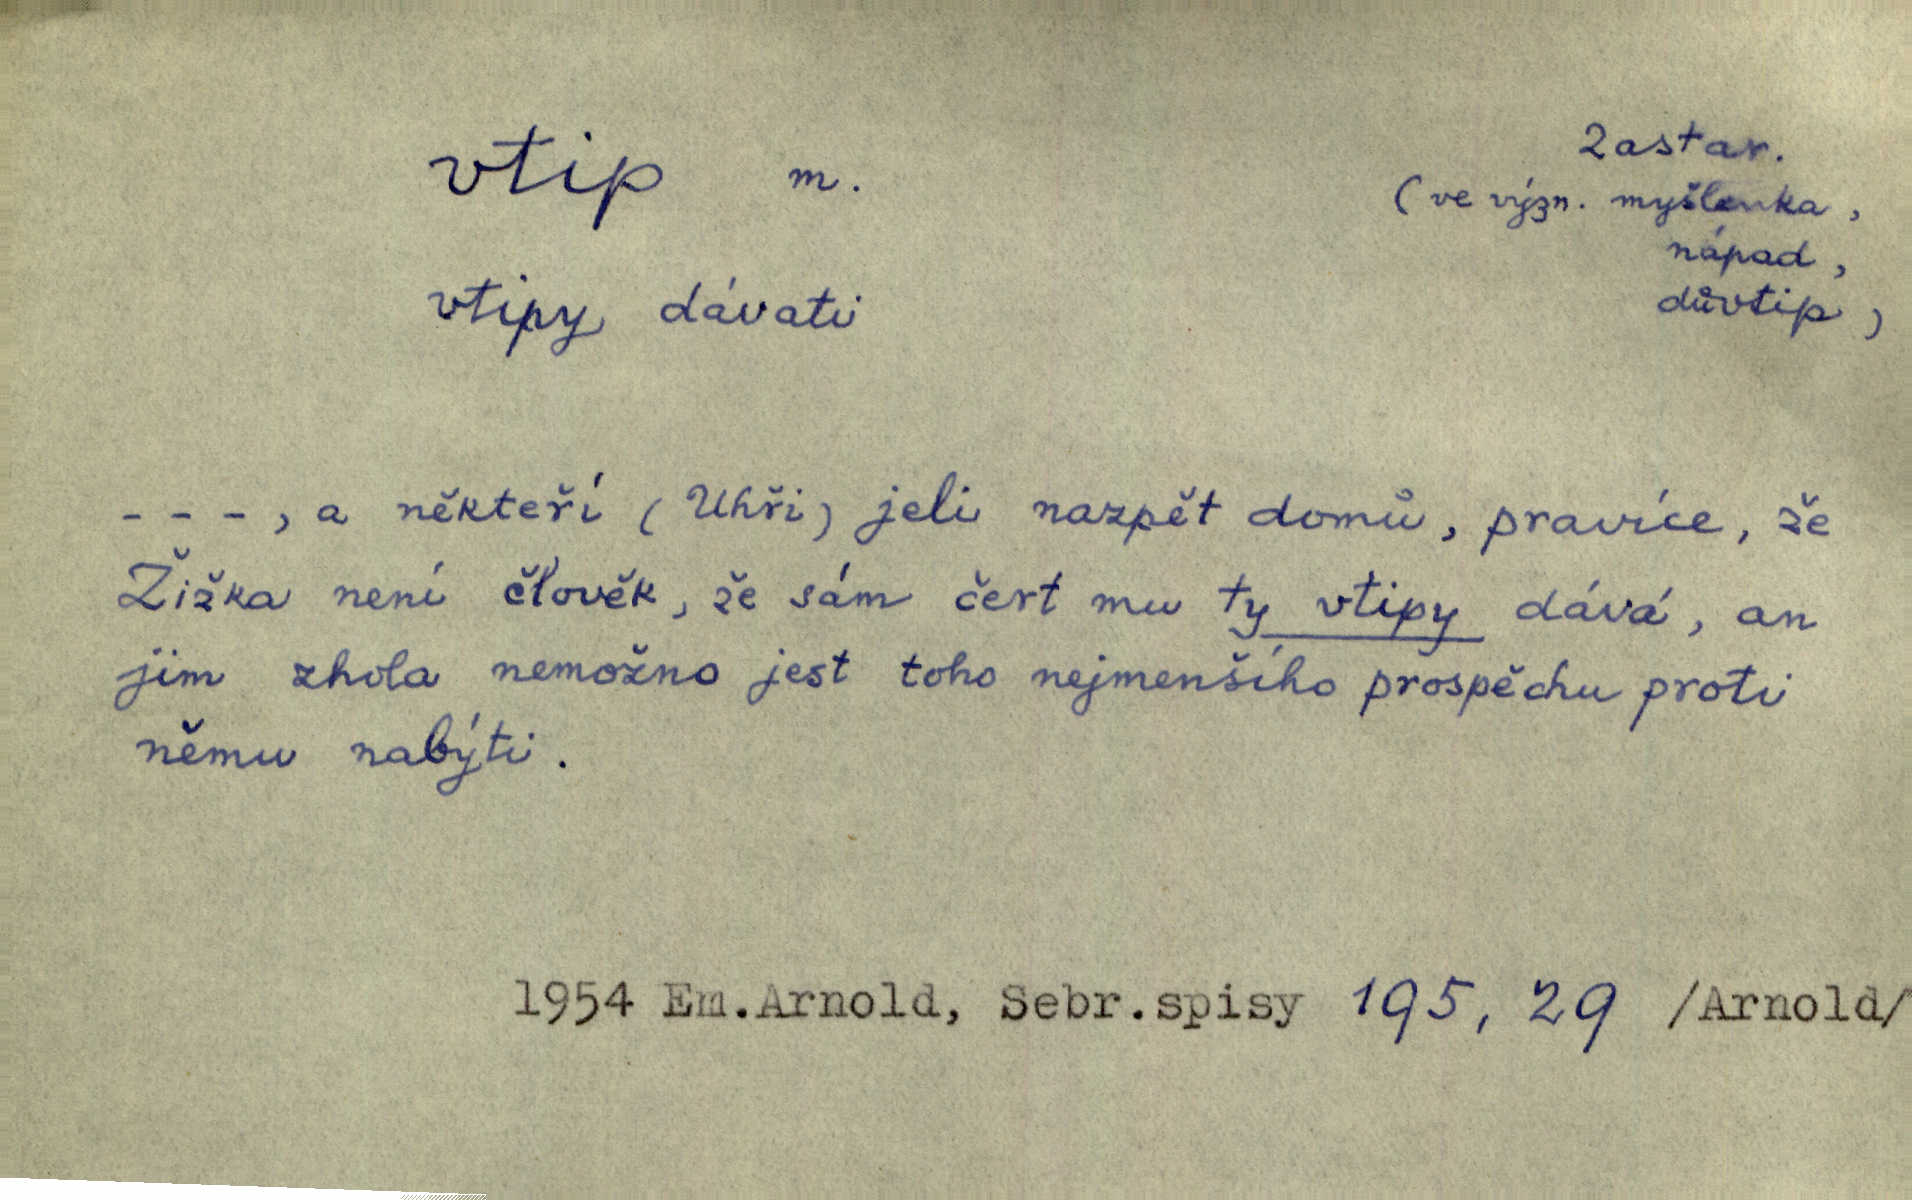 vtip m. Zastar.
(ve význ. myšlenka,
nápad,
vtipy dávati důvtip)
- - -, a někteří (Uhři) jeli nazpět domů, pravíce, že
Žižka není člověk, že sám čert mu ty vtipy dává, an
jim zhola nemožno jest toho nejmenšího prospěchu proti
němu nabýti.
1954 Em.Arnold, Sebr.spisy 195, 29 /Arnold/